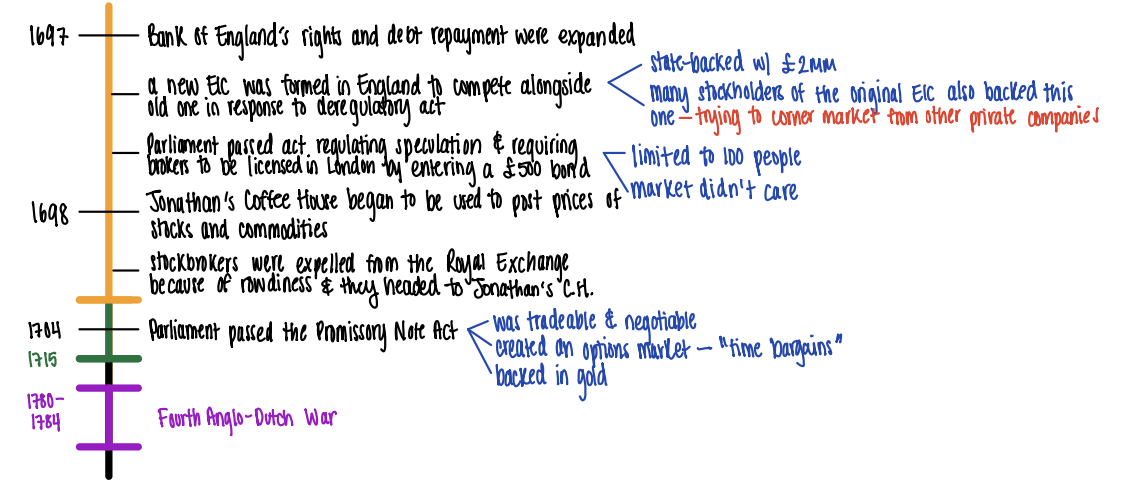 1697
Bank of England's rights and debt repayment were expanded
a new EIC was formed in England to compete alongside
old one in response to deregulatory act
state-backed w/ £2MM
many stockholders of the original EIC also backed this
one - trying to corner market from other private companies
Parliament passed act regulating speculation & requiring
brokers to be licensed in London by entering a £500 bond
limited to 100 people
market didn't care
1698
Jonathan's Coffee House began to be used to post prices of
stocks and commodities
stockbrokers were expelled from the Royal Exchange
because of rowdiness & they headed to Jonathan's C.H.
1704
Parliament passed the Promissory Note Act
was tradeable & negotiable
created an options market - "time bargains"
backed in gold
1715
1780-
1784
Fourth Anglo-Dutch War